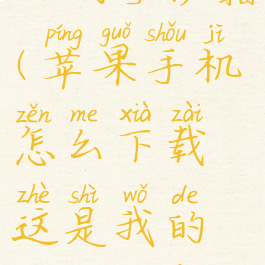 píng guǒ shǒu jī
(苹果手机
zěn me xià zài
怎么下载
zhè shì wǒ de
这是我的